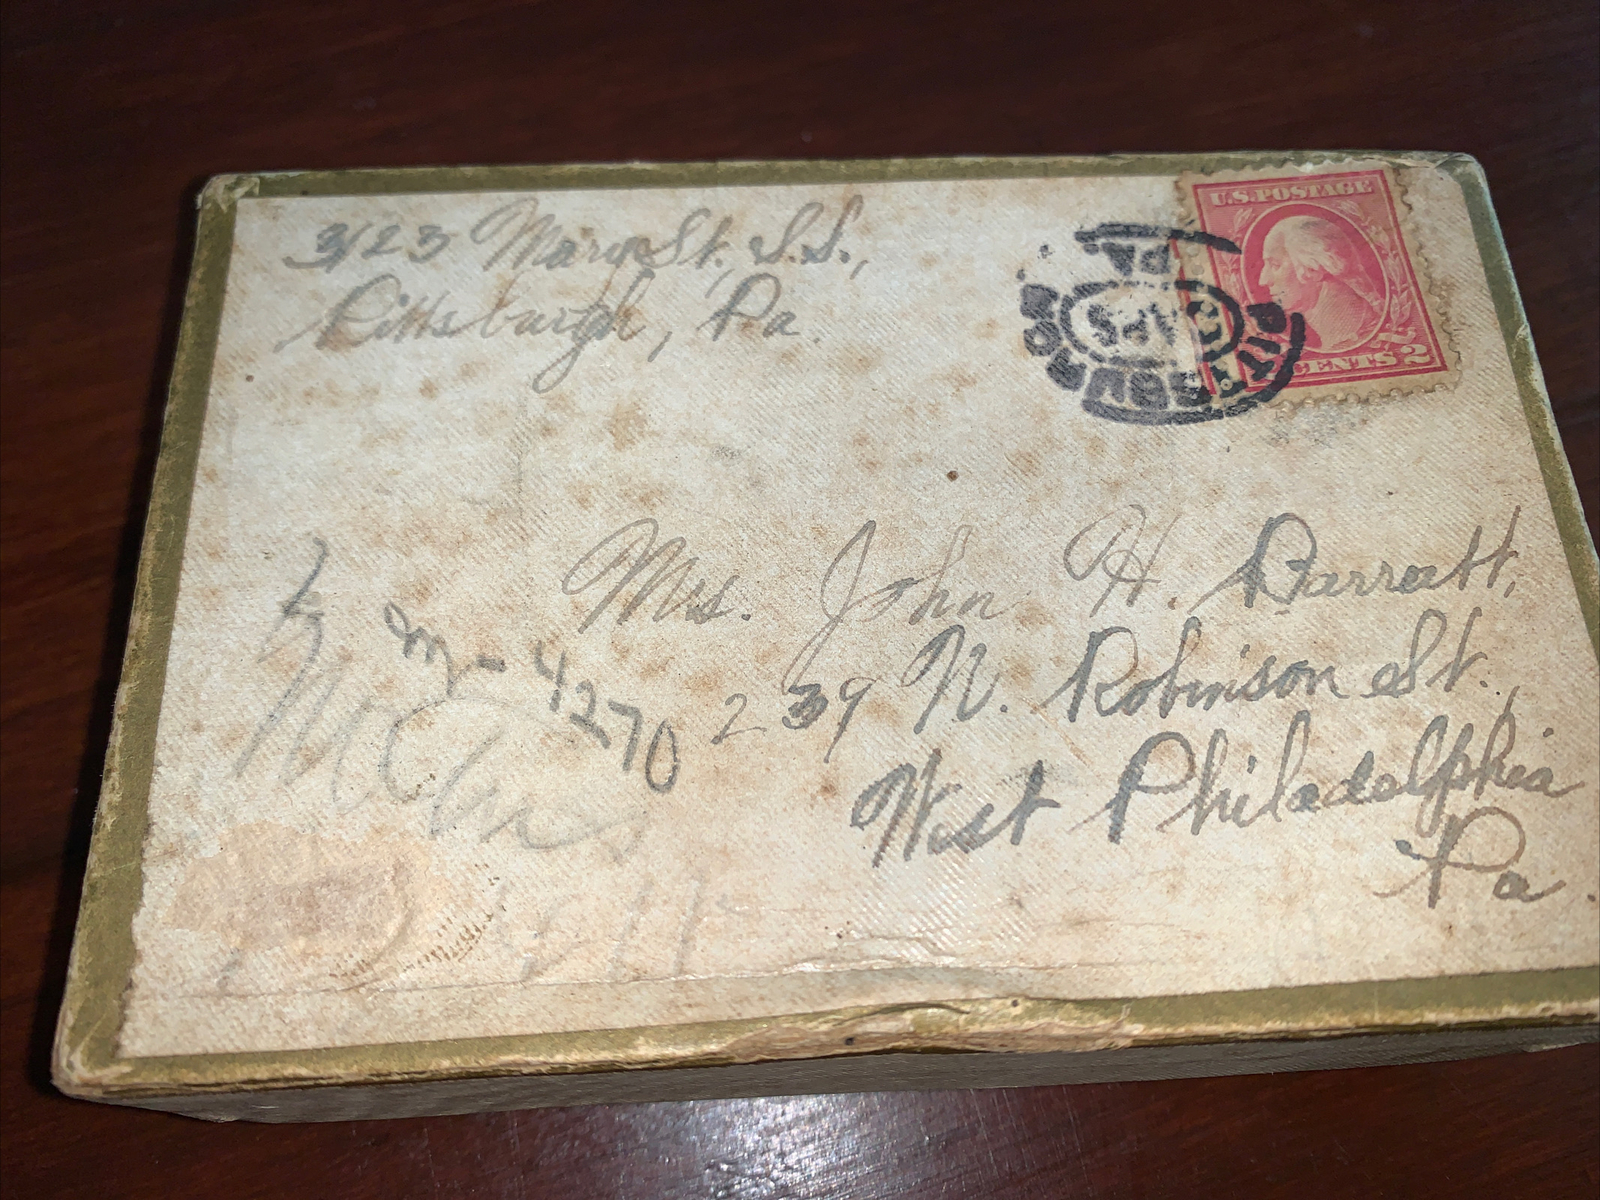 3123 Mary St. S.S.,
Pittsburgh, Pa.
U.S. POSTAGE
2 CENTS 2
PITTSBURGH
PA.
Mrs. John H. Barratt,
239 N. Robinson St.
West Philadelphia
Pa.
M-4270